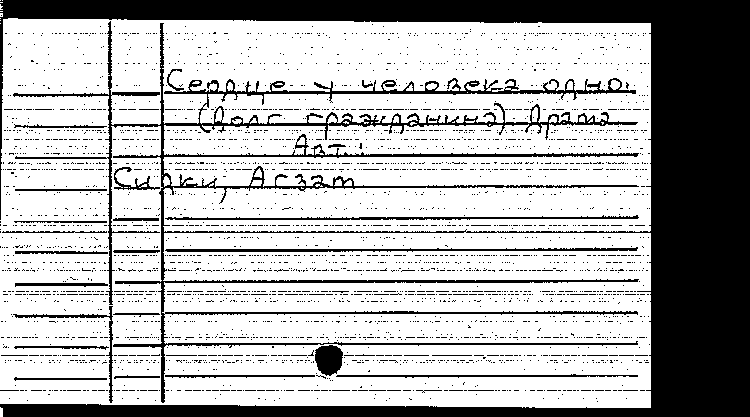 Сердце у человека одно.
(Долг гражданина) Драма
Авт.:
Сидки, Асзат